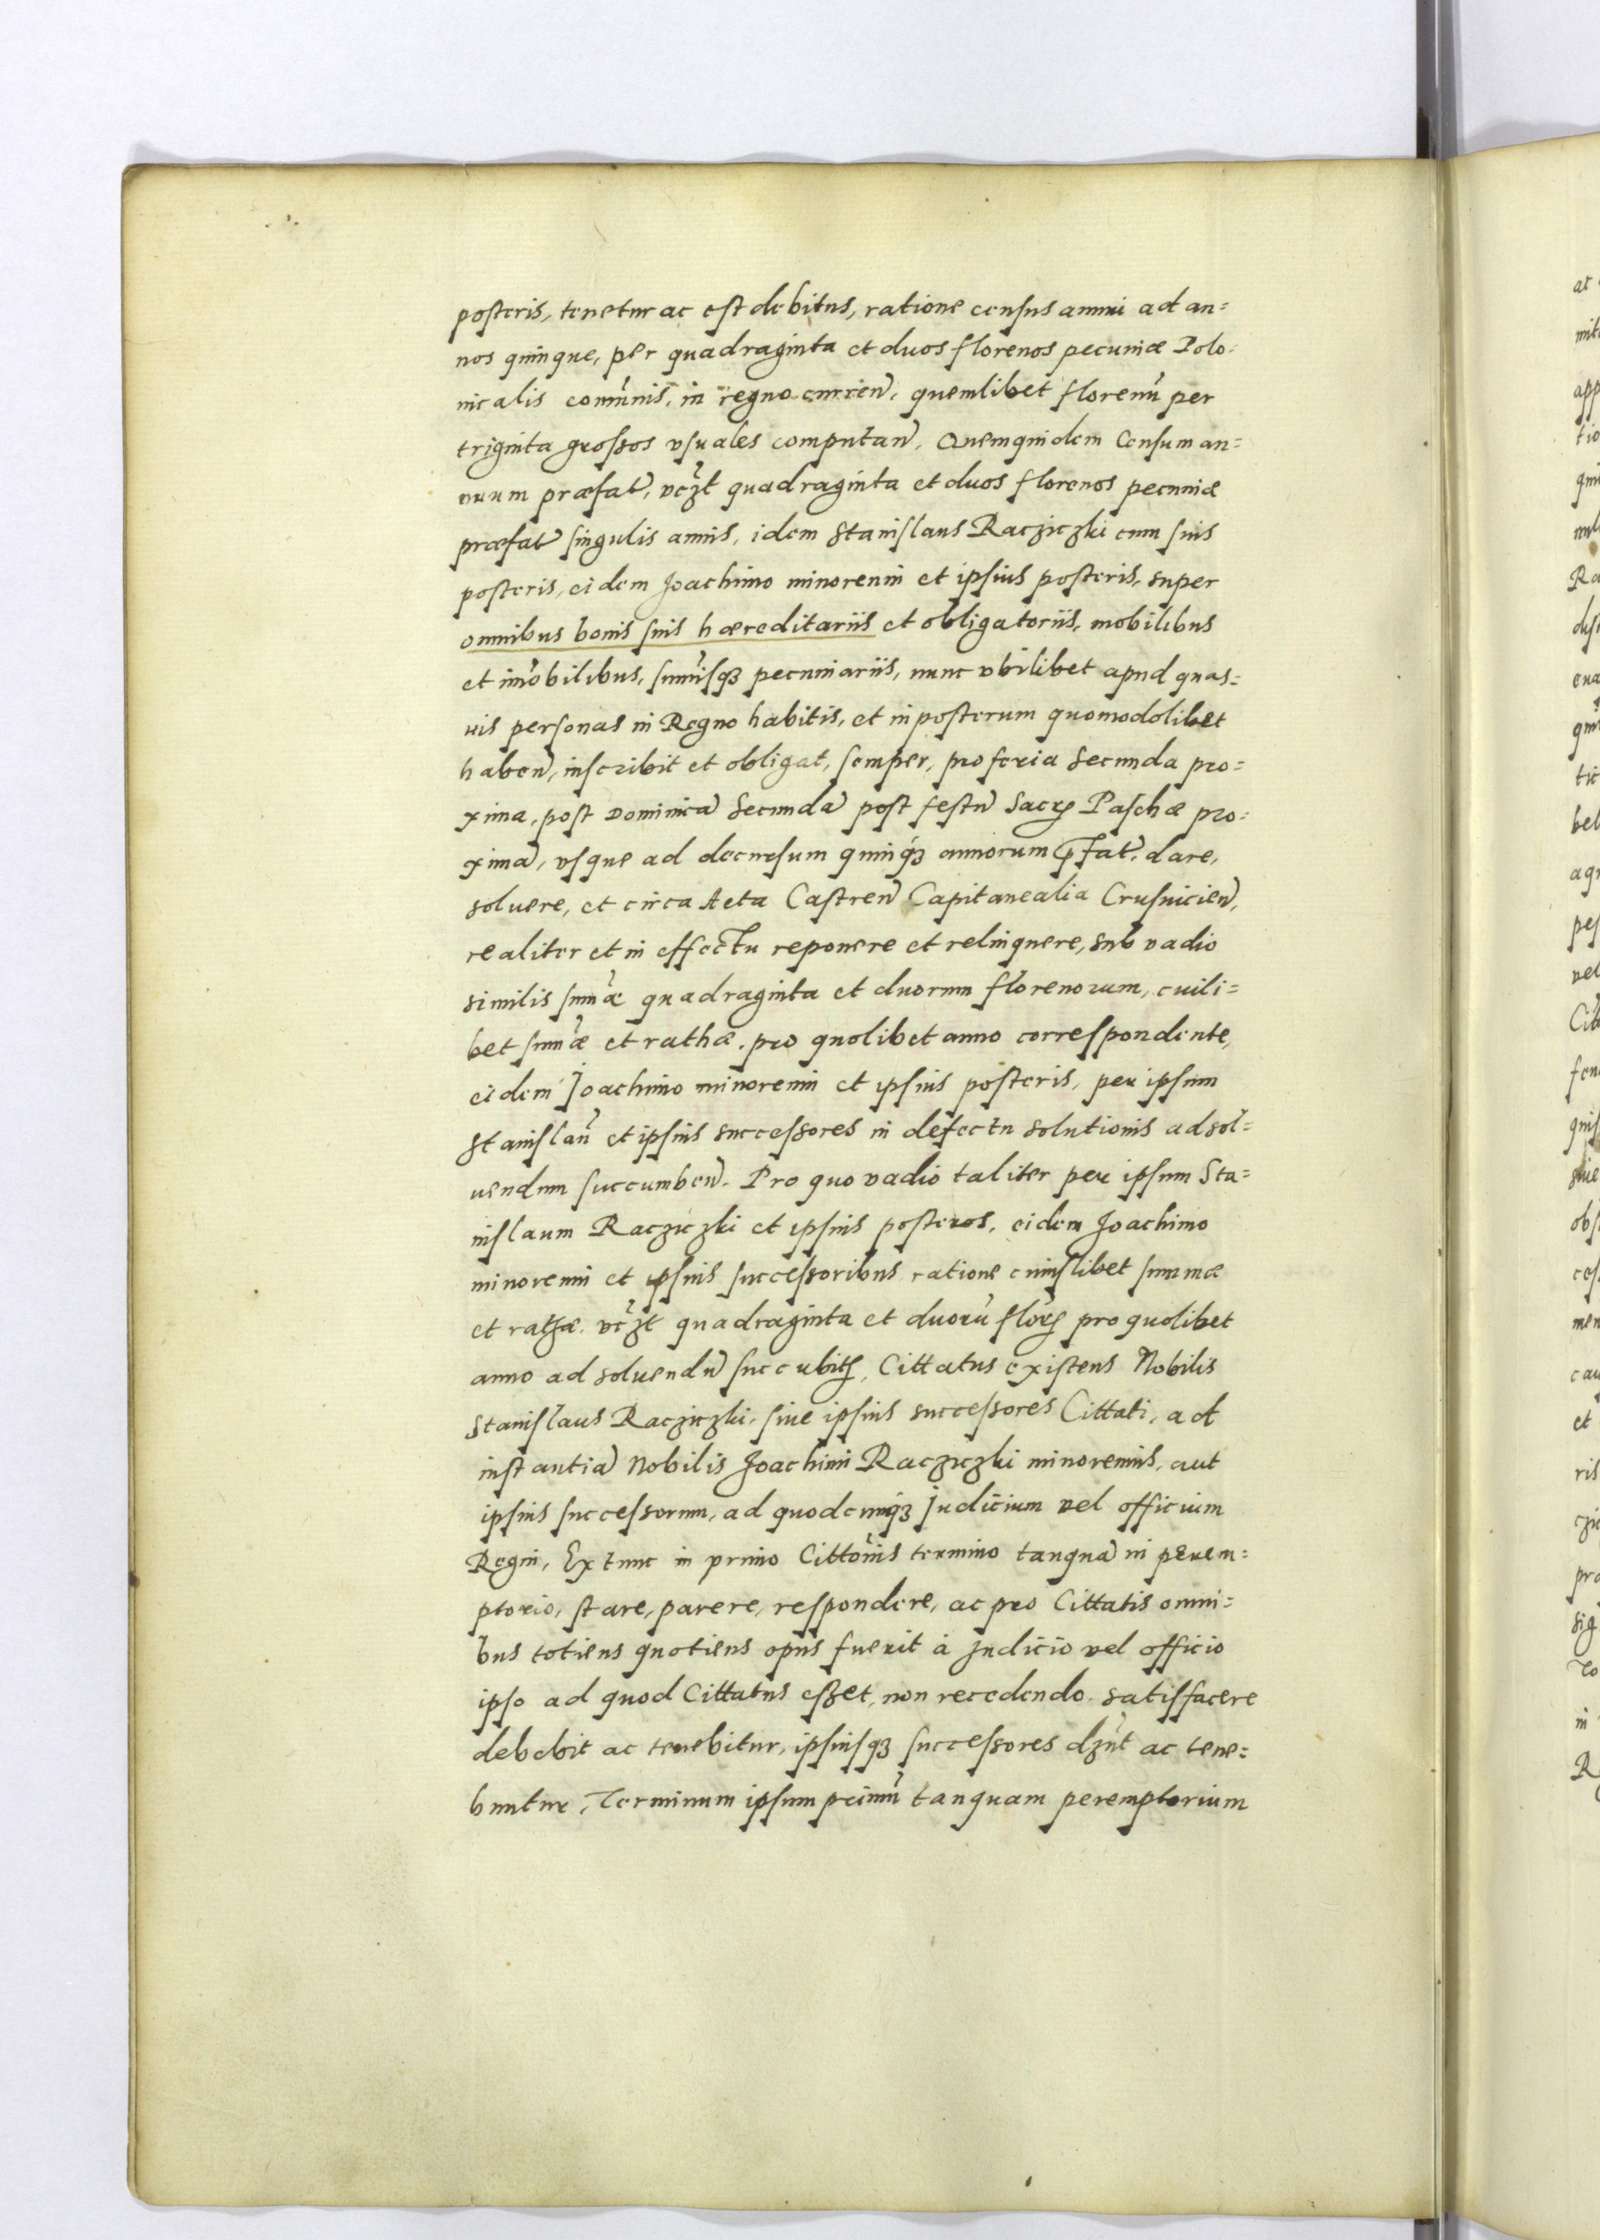 posteris, tenetur ac est debitus, ratione census annui ad an=
nos quinque, per quadraginta et duos florenos pecuniæ Polo-
nicalis com̃unis, in regno curren̄, quemlibet florenũ per
triginta grossos vsuales computan̄. Quemquidem Censum an=
nuum præfat̄, vcꝫt quadraginta et duos florenos pecuniæ
præfat̄ singulis annis, idem Stanislaus Racziczki cum suis
posteris, eidem Joachimo minorenni et ipsius posteris, super
omnibus bonis suis hæreditariis et obligatoriis, mobilibus
et im̃obilibus, sum̃isqꝫ pecuniariis, nunc vbilibet apud quas=
uis personas in Regno habitis, et in posterum quomodolibet
haben̄, inscribit et obligat, semper, pro feria secunda pro=
xima, post Dominicā Secundā post festū Sacrꝝ Paschæ pro-
ximā, vsque ad decursum quinqꝫ annorum p̄fat̄, dare,
soluere, et circa Acta Castren̄ Capitanealia Crusuicien̄,
realiter et in effectu reponere et relinquere, sub vadio
similis sum̃æ quadraginta et duorum florenorum, cuili=
bet sum̃æ et rathæ, pro quolibet anno correspondente,
eidem Joachimo minorenni et ipsius posteris, per ipsum
Stanislaũ et ipsius successores in defectu solutionis ad sol=
uendum succumben̄. Pro quo vadio taliter per ipsum Sta=
nislaum Racziczki et ipsius posteros, eidem Joachimo
minorenni et ipsius successoribus ratione cuiuslibet summæ
et rathæ, vcꝫt quadraginta et duorũ florꝝ pro quolibet
anno ad soluendū succubitꝝ, Cittatus existens Nobilis
Stanislaus Racziczki, siue ipsius successores Cittati, ad
instantiā Nobilis Joachimi Racziczki minorennis, aut
ipsius successorum, ad quodcunqꝫ Judicium vel officium
Regni, Ex tunc in primo Cittõnis termino tanquā in perem=
ptorio, stare, parere, respondere, ac pro Cittatis omni=
bus totiens quotiens opus fuerit à Judicio vel officio
ipso ad quod Cittatus esset, non recedendo satisfacere
debebit ac tenebitur, ipsiusqꝫ successores dꝫũt ac tene=
buntur, Terminum ipsum primũ tanquam peremptorium